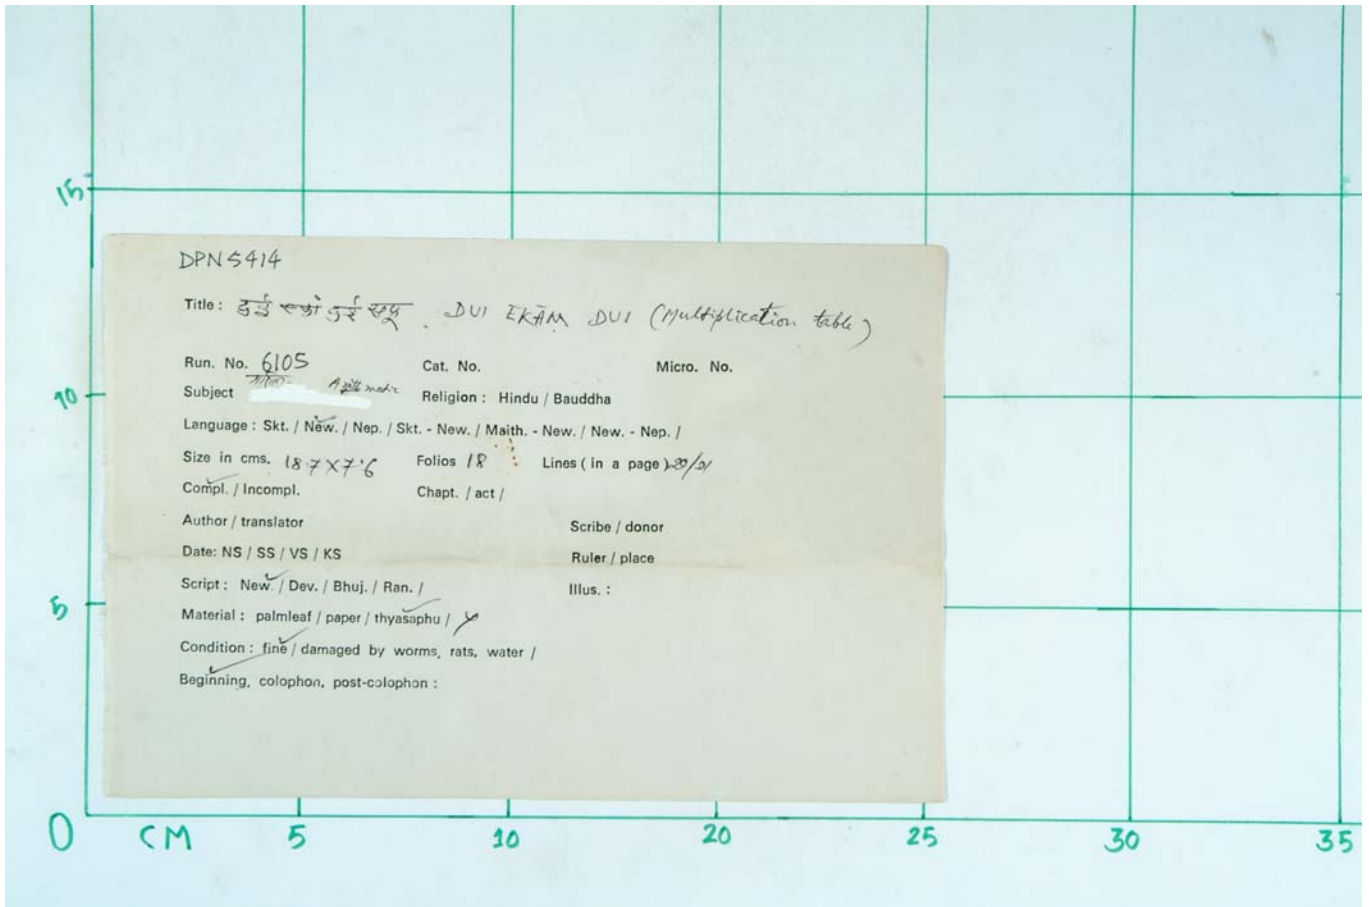 15
DPN 5414
Title : दुई एकां दुई DUI EKĀM DUI (Multiplication table)
Run. No. 6105 Cat. No. Micro. No.
10
Subject Religion : Hindu / Bauddha
Language : Skt. / New. / Nep. / Skt. - New. / Maith. - New. / New. - Nep. /
Size in cms. 18.7×7.6 Folios 18 Lines ( in a page ) 20/21
Compl. / Incompl. Chapt. / act /
Author / translator Scribe / donor
Date: NS / SS / VS / KS Ruler / place
Script : New. / Dev. / Bhuj. / Ran. / Illus. :
5
Material : palmleaf / paper / thyasaphu /
Condition : fine / damaged by worms, rats, water /
Beginning, colophon, post-colophon :
0 CM 5 10 20 25 30 35